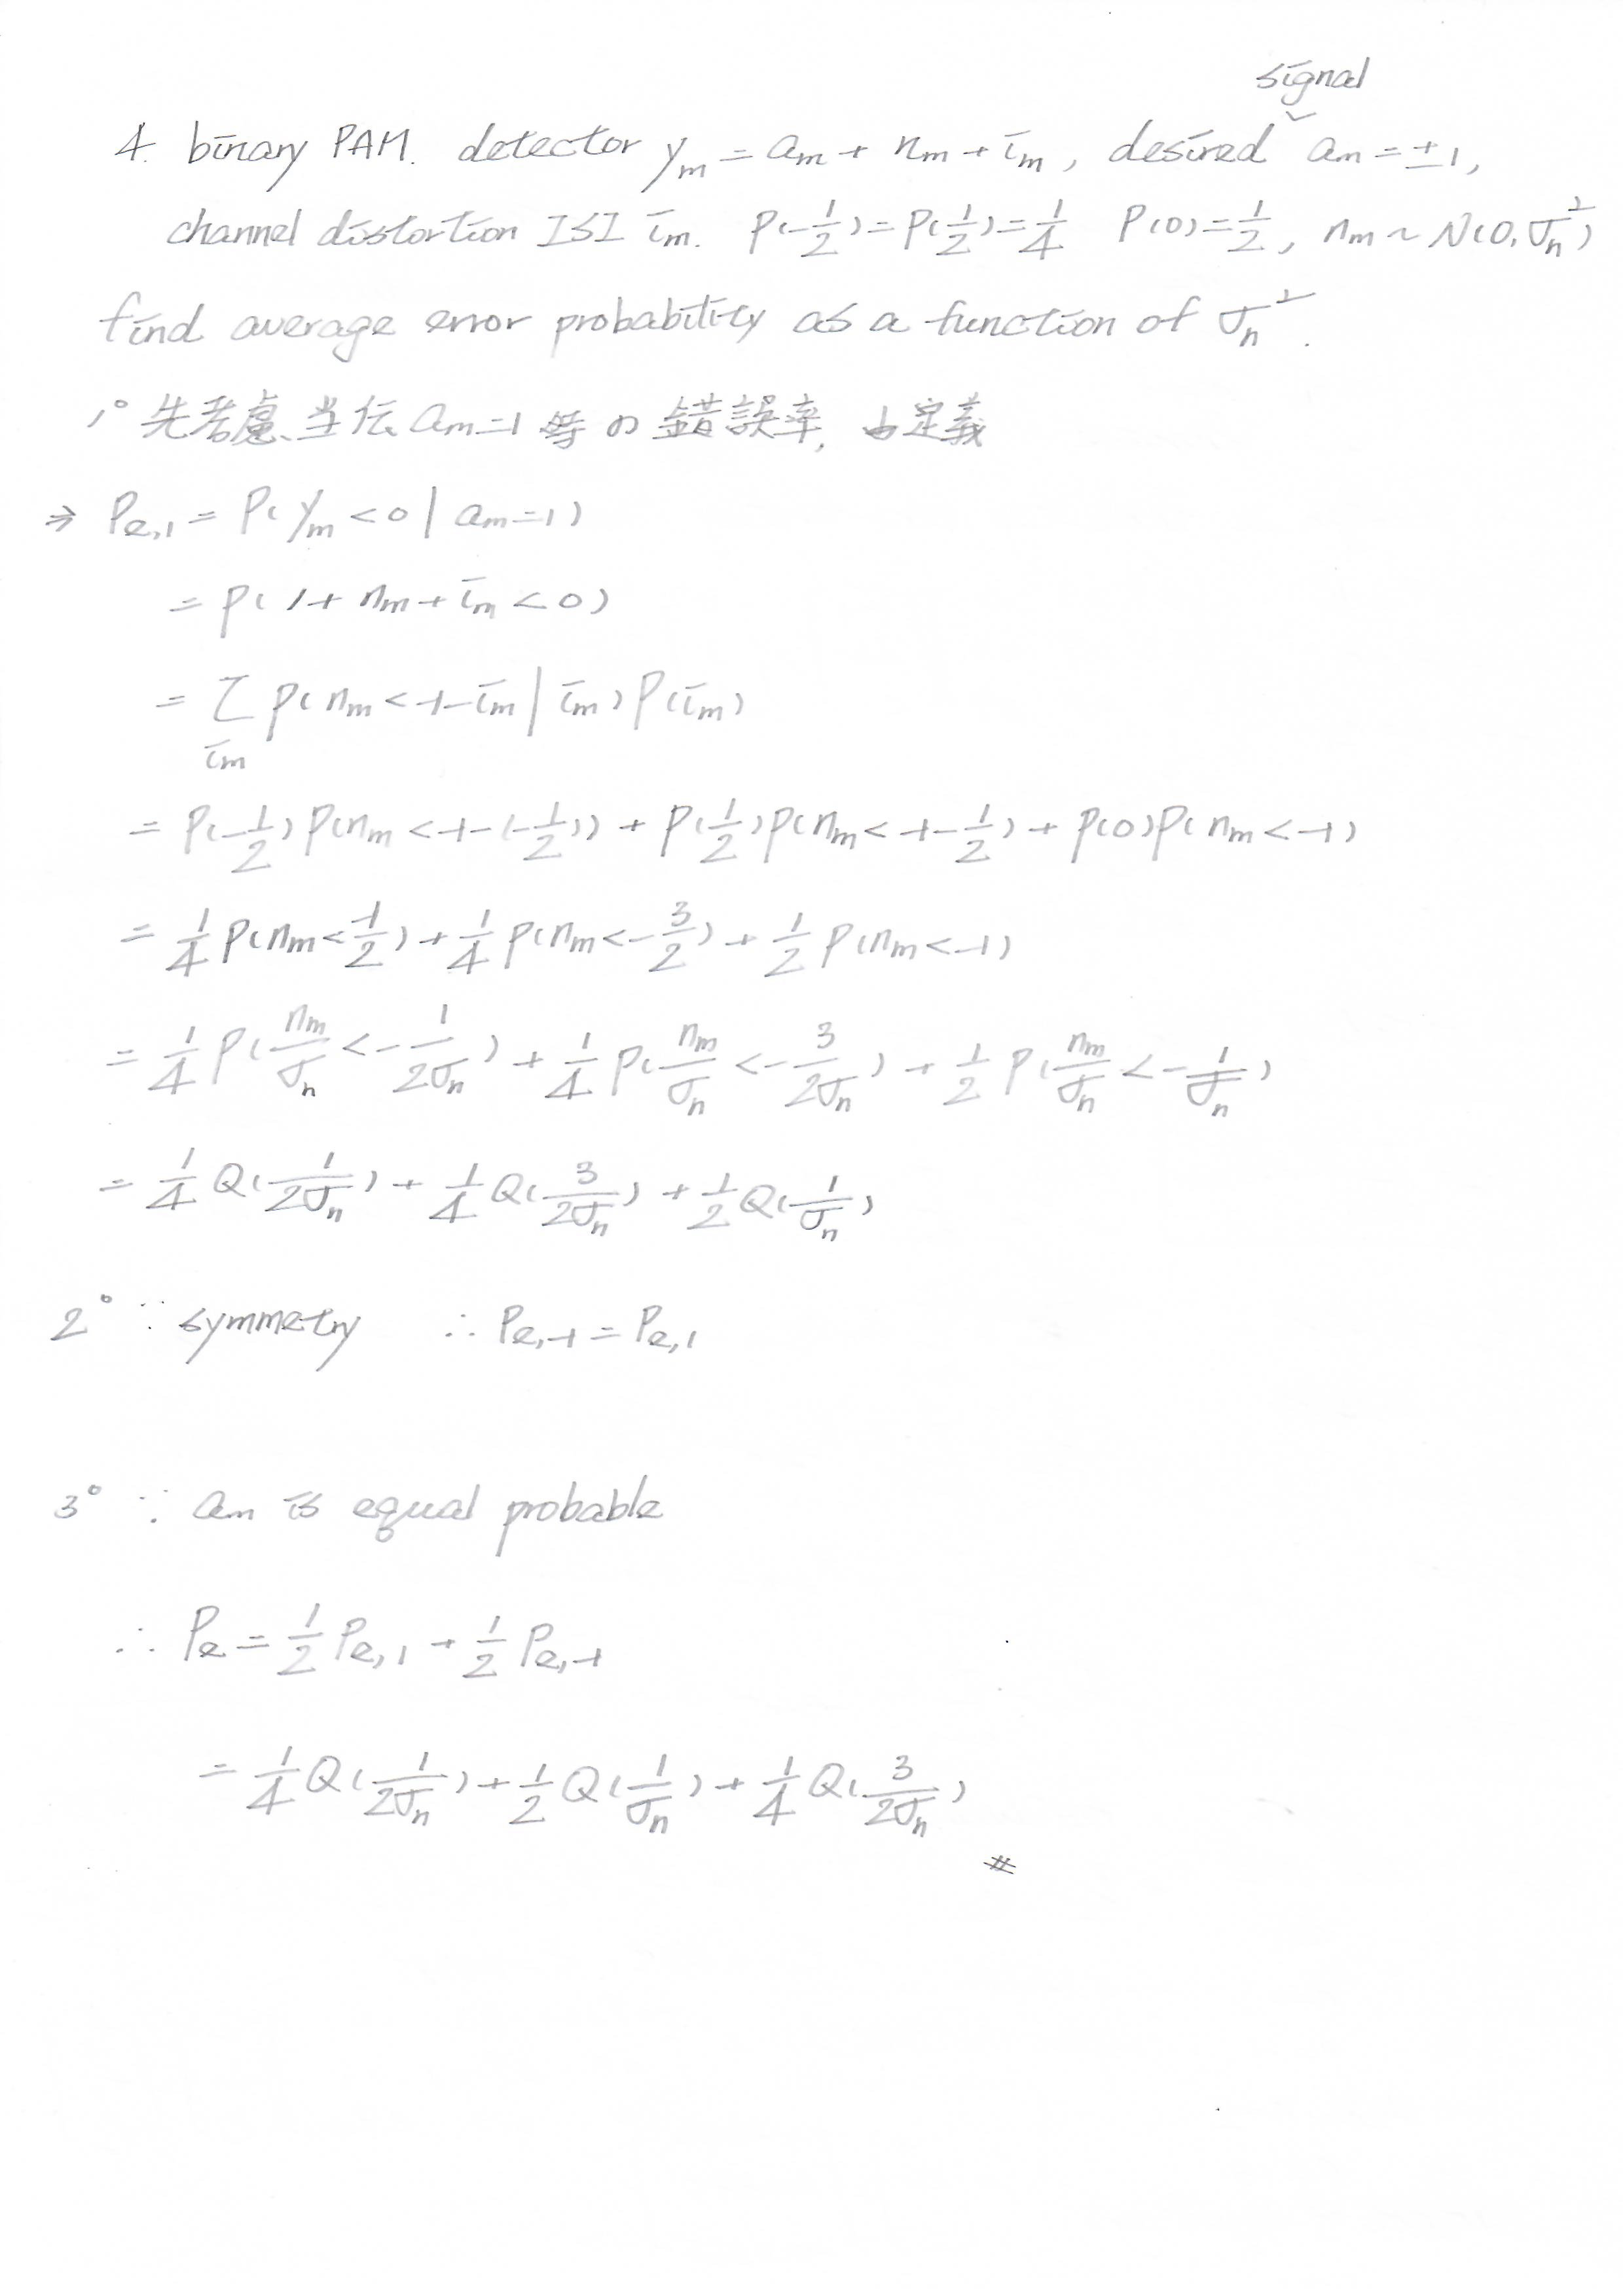 signal
4. binary PAM. detector yₘ = aₘ + nₘ + iₘ, desired ˇ aₘ = ±1,
channel distortion ISI iₘ. P(-1/2) = P(1/2) = 1/4 P(0) = 1/2, nₘ ~ N(0, σₙ²)
find average error probability as a function of σₙ².
1° 先考慮、当伝 aₘ=1 等の錯誤率, 由定義
⇒ Pe,1 = P(yₘ < 0 | aₘ = 1)
= P(1 + nₘ + iₘ < 0)
= Σ_{iₘ} P(nₘ < -1 - iₘ | iₘ) P(iₘ)
= P(-1/2) P(nₘ < -1 - (-1/2)) + P(1/2) P(nₘ < -1 - 1/2) + P(0) P(nₘ < -1)
= 1/4 P(nₘ < -1/2) + 1/4 P(nₘ < -3/2) + 1/2 P(nₘ < -1)
= 1/4 P(nₘ/σₙ < -1/(2σₙ)) + 1/4 P(nₘ/σₙ < -3/(2σₙ)) + 1/2 P(nₘ/σₙ < -1/σₙ)
= 1/4 Q(1/(2σₙ)) + 1/4 Q(3/(2σₙ)) + 1/2 Q(1/σₙ)
2° ∵ symmetry ∴ Pe,-1 = Pe,1
3° ∵ aₘ is equal probable
∴ Pe = 1/2 Pe,1 + 1/2 Pe,-1
= 1/4 Q(1/(2σₙ)) + 1/2 Q(1/σₙ) + 1/4 Q(3/(2σₙ))
#